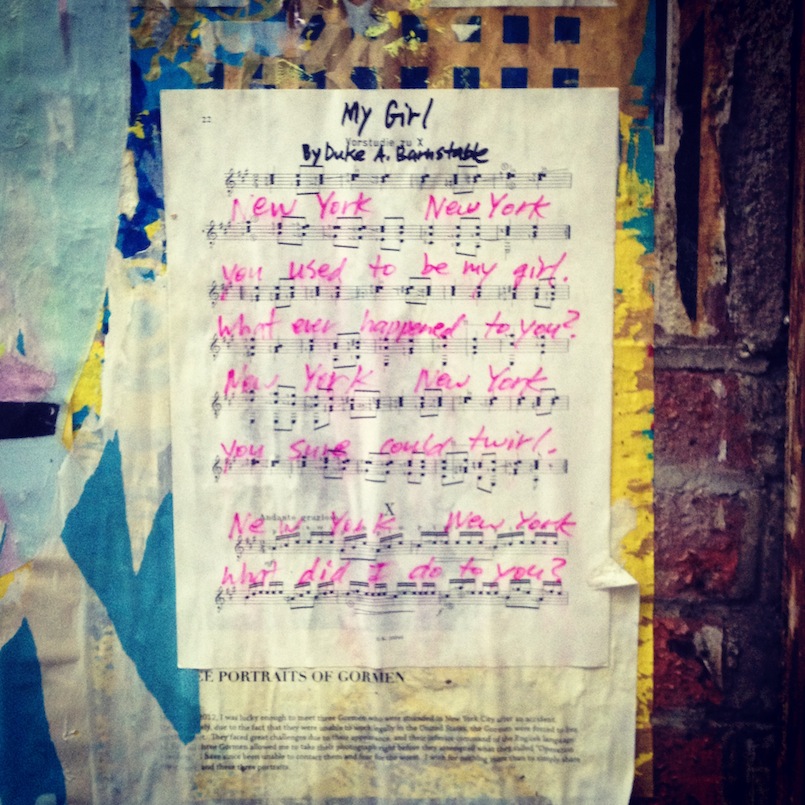 22
My Girl
Vorstudie zu X
By Duke A. Barnstable
New York New York
you used to be my girl.
what ever happened to you?
New York New York
you sure could twirl.
X
Andante grazioso
New York New York
what did I do to you?
EE PORTRAITS OF GORMEN
2012, I was lucky enough to meet three Gormen who were stranded in New York City after an accident.
ly, due to the fact that they were unable to work legally in the United States, the Gormen were forced to live
. They faced great challenges due to their appearance, and their of the English language.
hree Gormen allowed me to take their photograph right before they attempted what they called "Operation
I have since been unable to contact them and fear for the worst. I wish for nothing more than to simply share
and these three portraits.